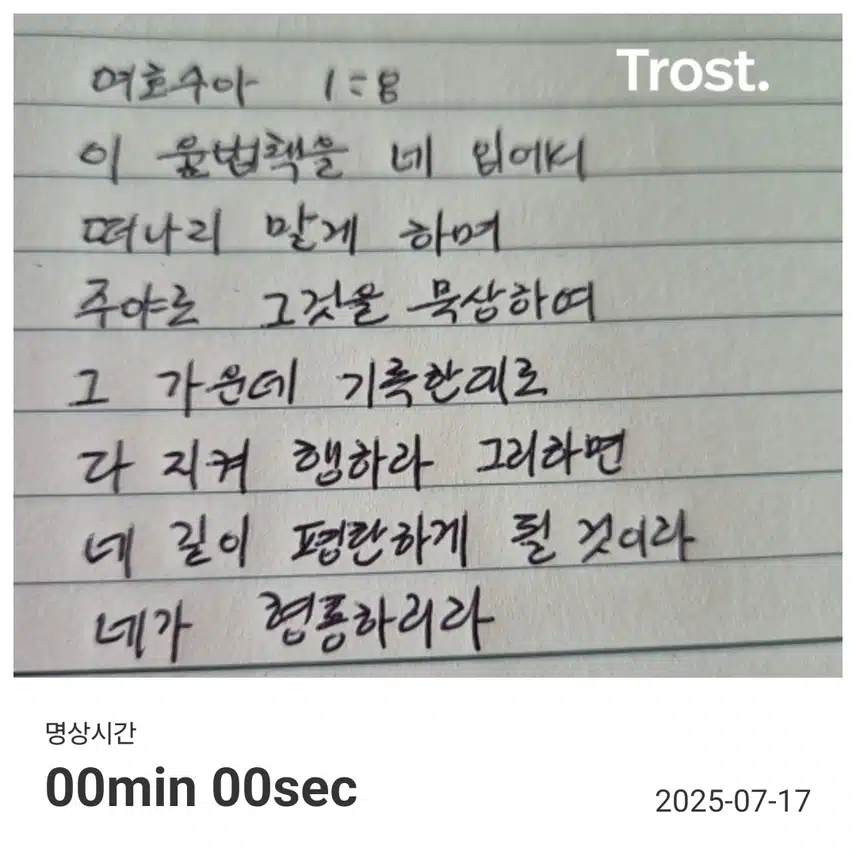 Trost.
여호수아 1:8
이 율법책을 네 입에서
떠나리 말게 하며
주야로 그것을 묵상하여
그 가운데 기록한대로
다 지켜 행하라 그리하면
네 길이 평탄하게 될 것이라
네가 형통하리라
명상시간
00min 00sec
2025-07-17